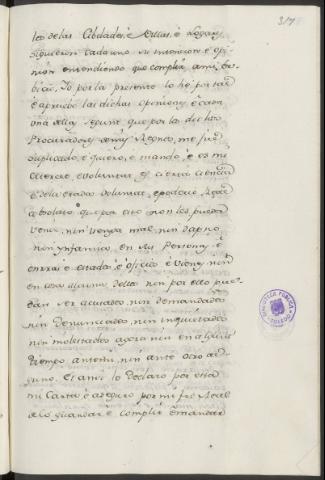 317
los de las Cibdades, è Villas, è Logares
siguieron cada uno su intencion è opi-
nion entendiendo que complia à mi ser-
vicio. Io por la presente lo hè por tal
è apruebo las dichas opiniones è cada
una dellas segunt que por los dichos
Procuradores de mis Regnos, me fue
suplicado, è quiero, è mando, è es mi
merced, è voluntad de cierta ciencia
è deliverada voluntad è poderio Real
absoluto que por esto non les pueda
venir, nin venga mal, nin dapno
nin ynfamia en sus Personas è
honrras è estados è oficios è vienes nin
en cosa alguna dello nin por ello pue-
dan ser acusados, nin demandados
nin denunciados, nin inquietados
nin molestados agora nin en algunt
tiempo ante mi, nin ante otro al-
guno. Et ansi lo declaro por esta
mi Carta è aseguro por mi fee Real
de lo guardar è complir è mandar
BIBLIOTECA PUBLICA TOLEDO